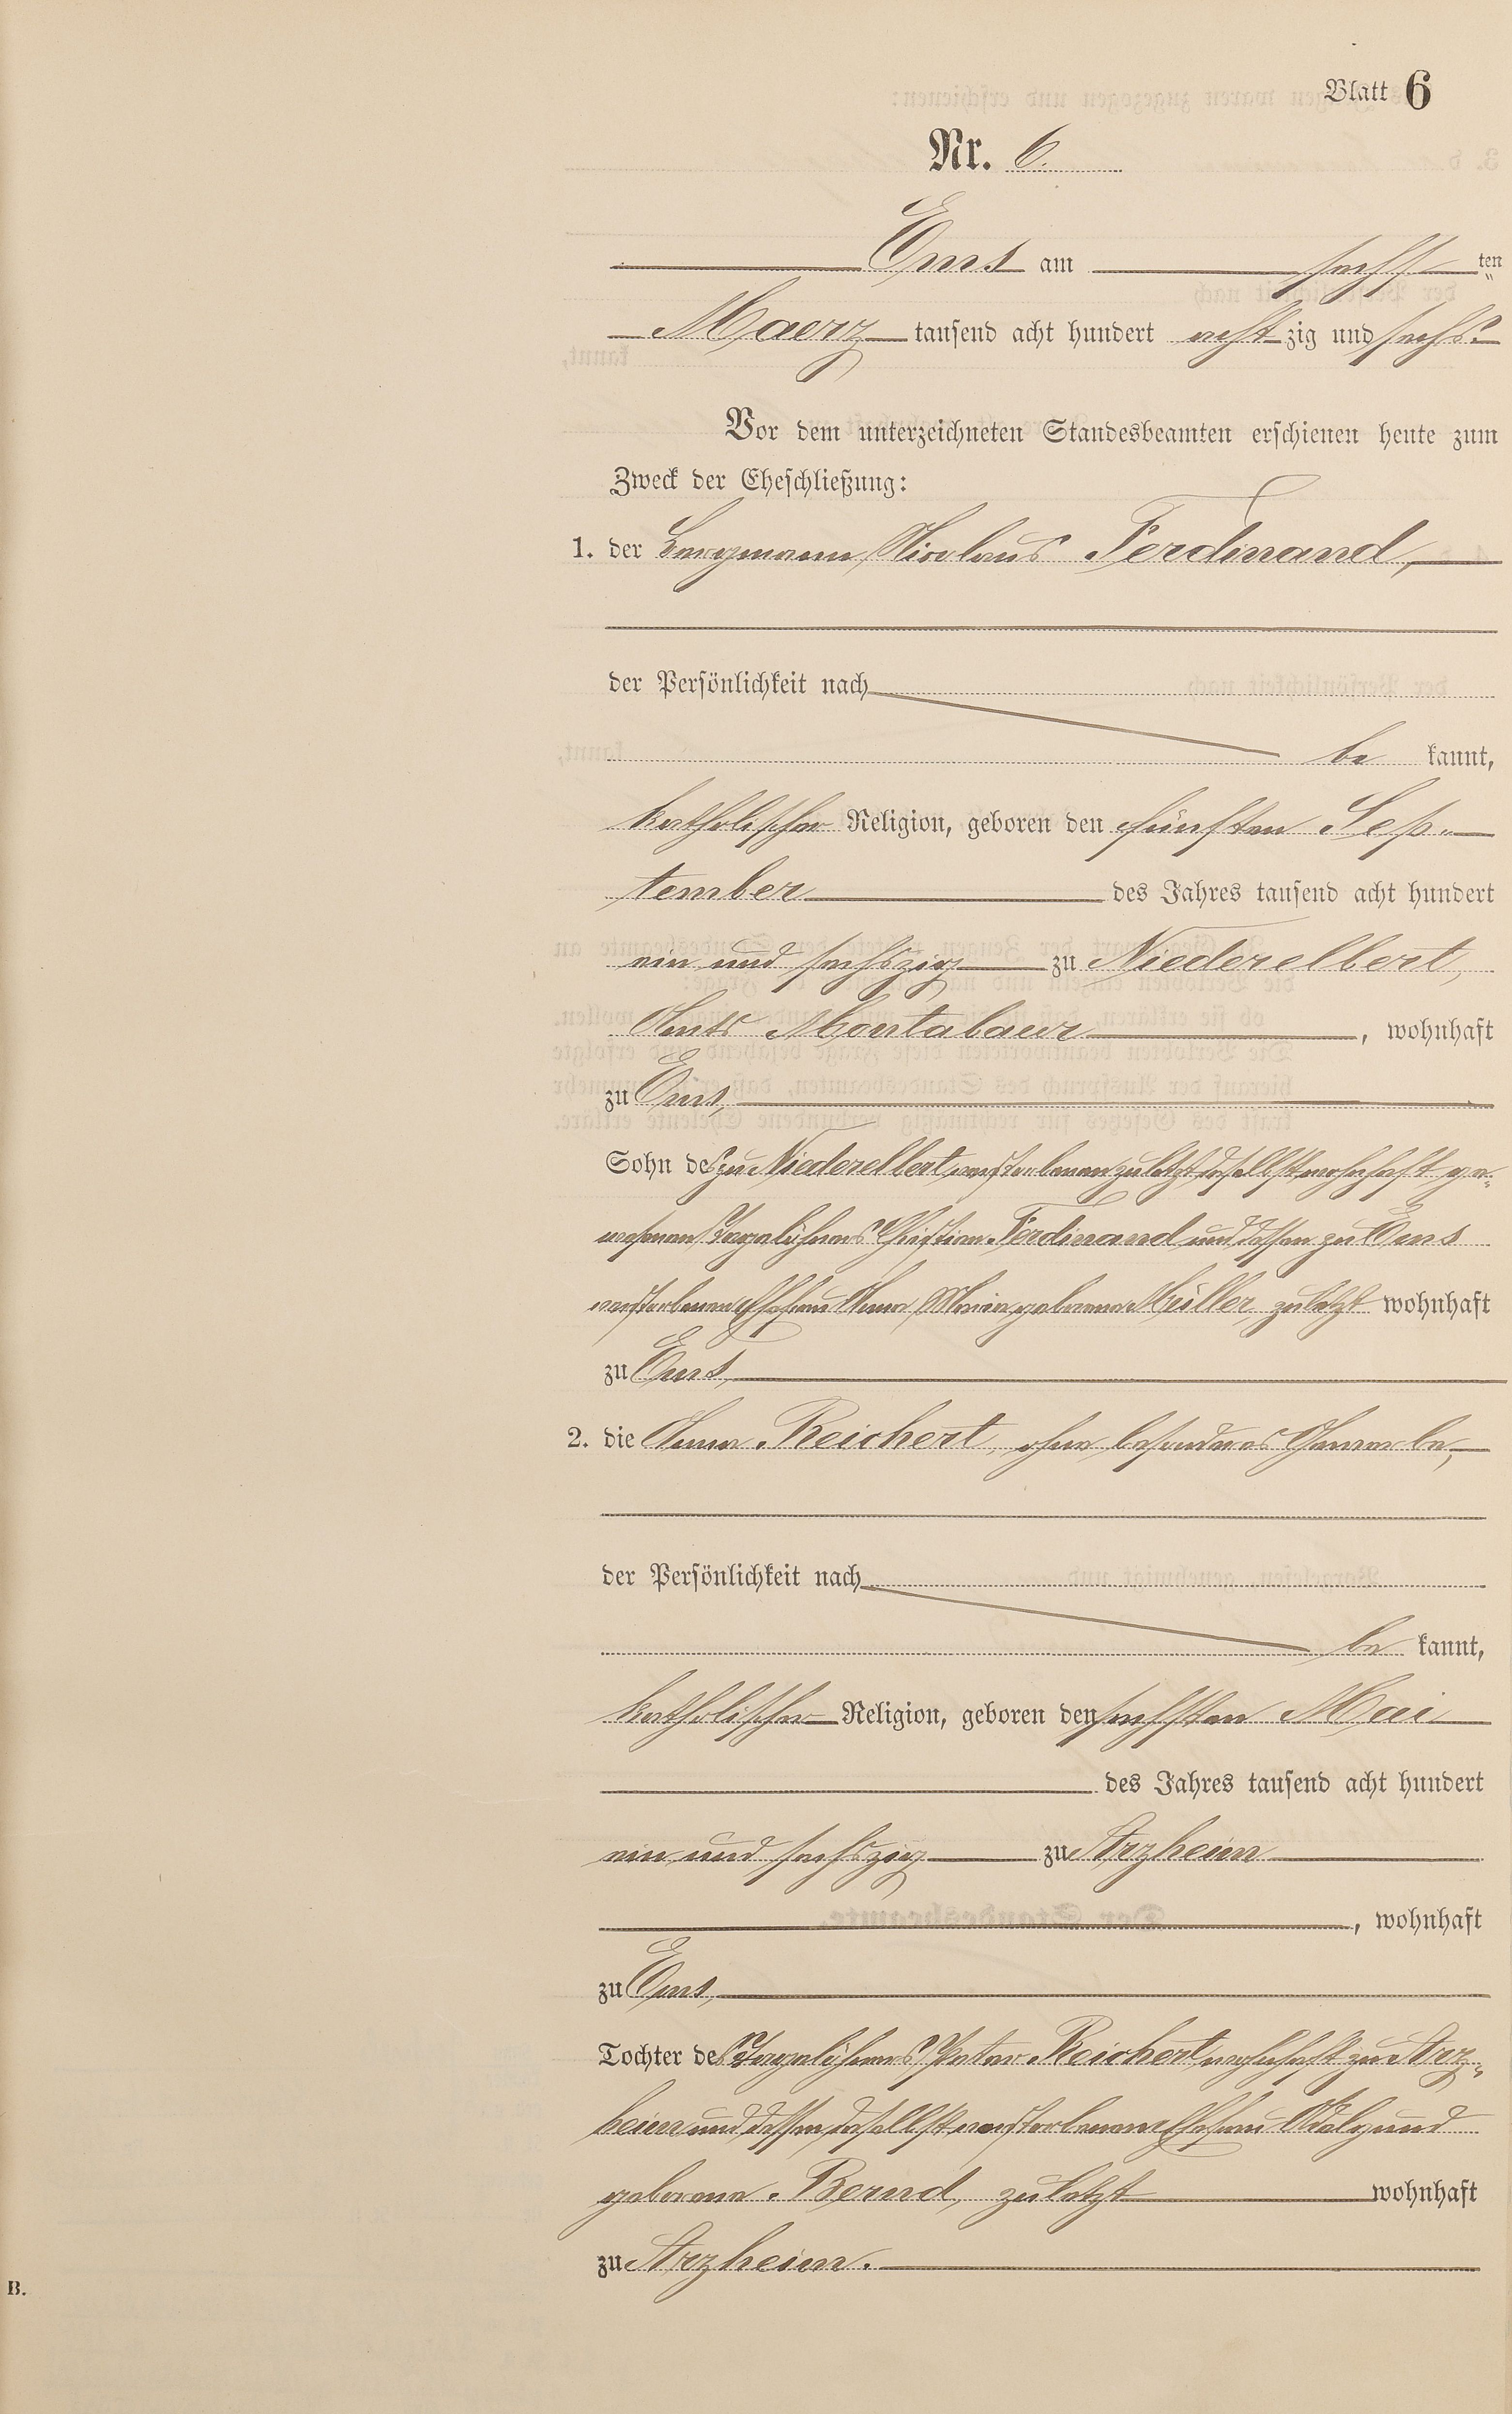 Blatt 6
Nr. 6.
Ems am sechsten
Maerz tausend acht hundert achtzig und sechs.
Vor dem unterzeichneten Standesbeamten erschienen heute zum
Zweck der Eheschließung:
1. der Bergmann Nicolaus Ferdinand,
der Persönlichkeit nach
be kannt,
katholischer Religion, geboren den fünften Sep-
tember des Jahres tausend acht hundert
ein und sechszig zu Niederelbert,
Amts Montabaur, wohnhaft
zu Ems,
Sohn des zu Niederelbert verstorbenen zuletzt daselbst wohnhaft ge-
wesenen Tagelöhners Christian Ferdinand und dessen zu Ems
verstorbenen Ehefrau Anna Maria geborene Müller, zuletzt wohnhaft
zu Ems,
2. die Anna Reichert, ohne besonderes Gewerbe,
der Persönlichkeit nach
be kannt,
katholischer Religion, geboren den sechsten Mai
des Jahres tausend acht hundert
ein und sechszig zu Arzheim
, wohnhaft
zu Ems,
Tochter des Tagelöhners Peter Reichert wohnhaft zu Arz-
heim und dessen daselbst verstorbenen Ehefrau
geborene Bernd, zuletzt wohnhaft
zu Arzheim.
B.